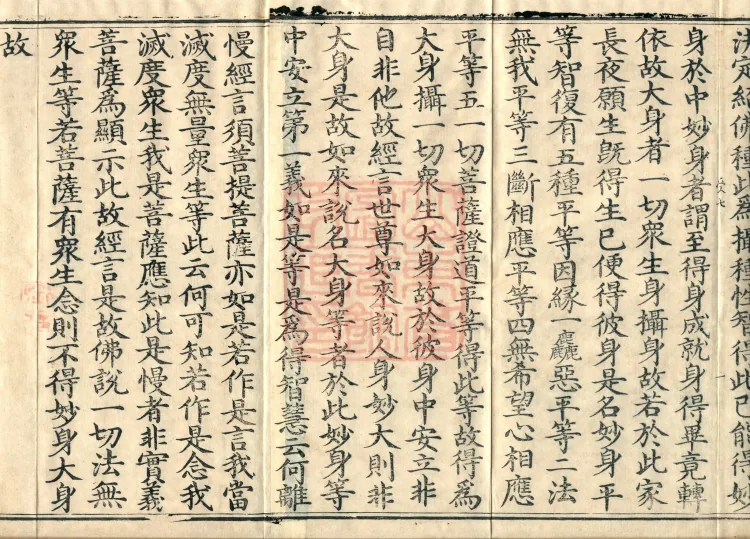 法定經佛種此為攝種性智得此已能得妙
身於中妙身者謂至得身成就身得畢竟轉
依故大身者一切眾生身攝身故若於此家
長夜願生既得生已便得彼身是名妙身平
等智復有五種平等因緣一麤惡平等二法
無我平等三斷相應平等四無希望心相應
平等五一切菩薩證道平等得此等故得為
大身攝一切眾生大身故於彼身中安立非
自非他故經言世尊如來說人身妙大則非
大身是故如來說名大身等者於此妙身等
中安立第一義如是等是為得智慧云何離
慢經言須菩提菩薩亦如是若作是言我當
滅度無量眾生等此云何可知若作是念我
滅度眾生我是菩薩應知此是慢者非實義
菩薩為顯示此故經言是故佛說一切法無
眾生等若菩薩有眾生念則不得妙身大身
故